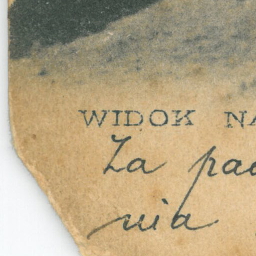 WIDOK NA
Za pa
nia